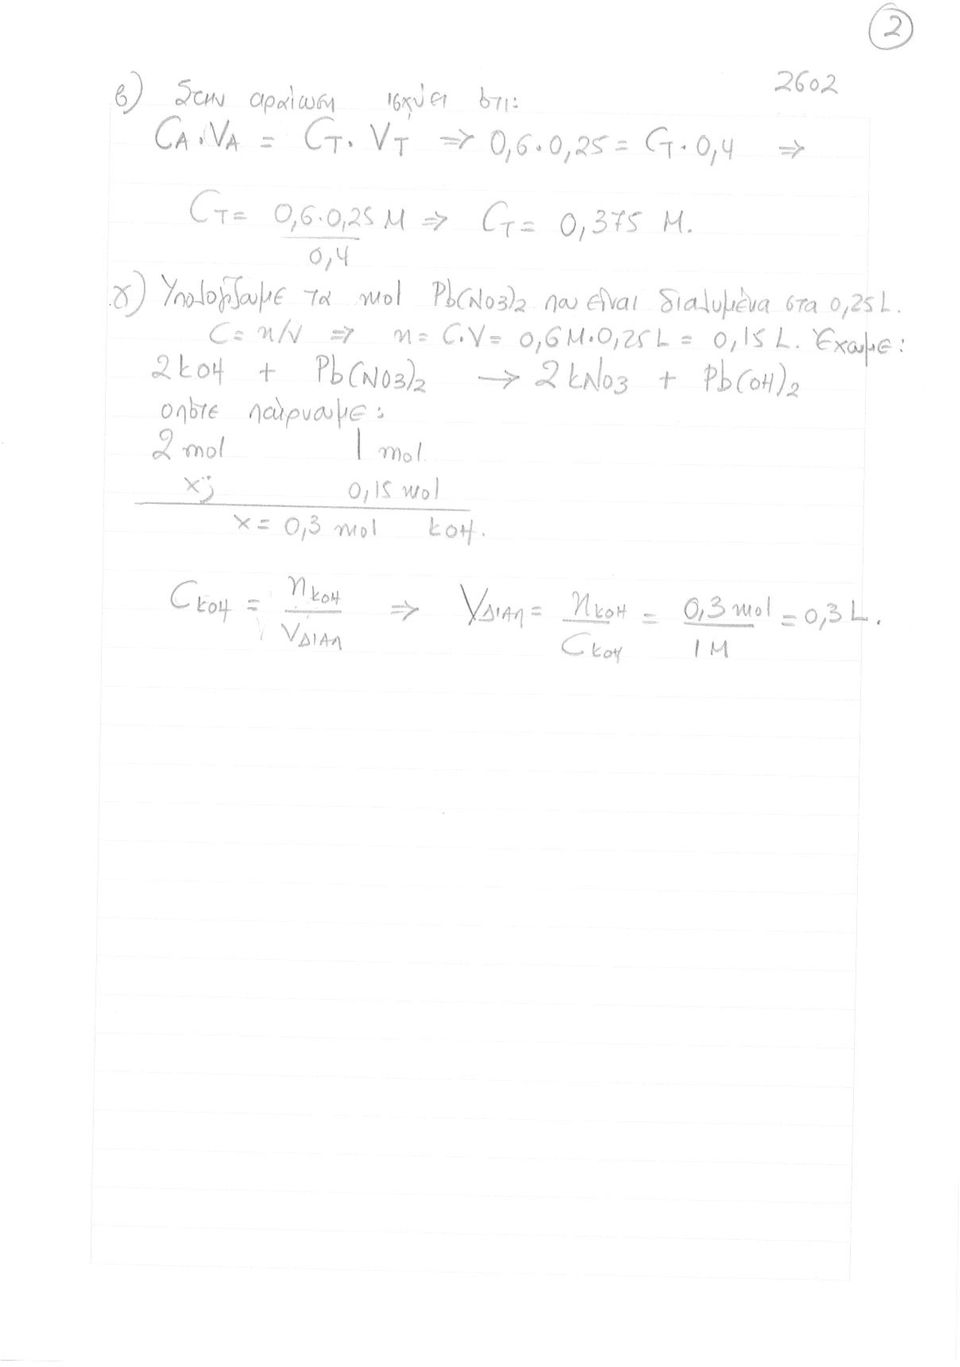 2
2602
β) Στην αραίωση ισχύει ότι:
CA.VA = CT. VT ⇒ 0,6.0,25 = CT.0,4 ⇒
CT = 0,6.0,25 M ⇒ CT = 0,375 M.
0,4
γ) Υπολογίζουμε τα mol Pb(NO3)2 που είναι διαλυμένα στα 0,25L.
C = n/V ⇒ n = C.V = 0,6M.0,25L = 0,15 L. Έχουμε:
2KOH + Pb(NO3)2 → 2KNO3 + Pb(OH)2
οπότε παίρνουμε:
2 mol 1 mol
x; 0,15 mol
x = 0,3 mol KOH.
CKOH = nKOH ⇒ VΔΙΑΛ = nKOH = 0,3 mol = 0,3 L.
VΔΙΑΛ CKOH 1M